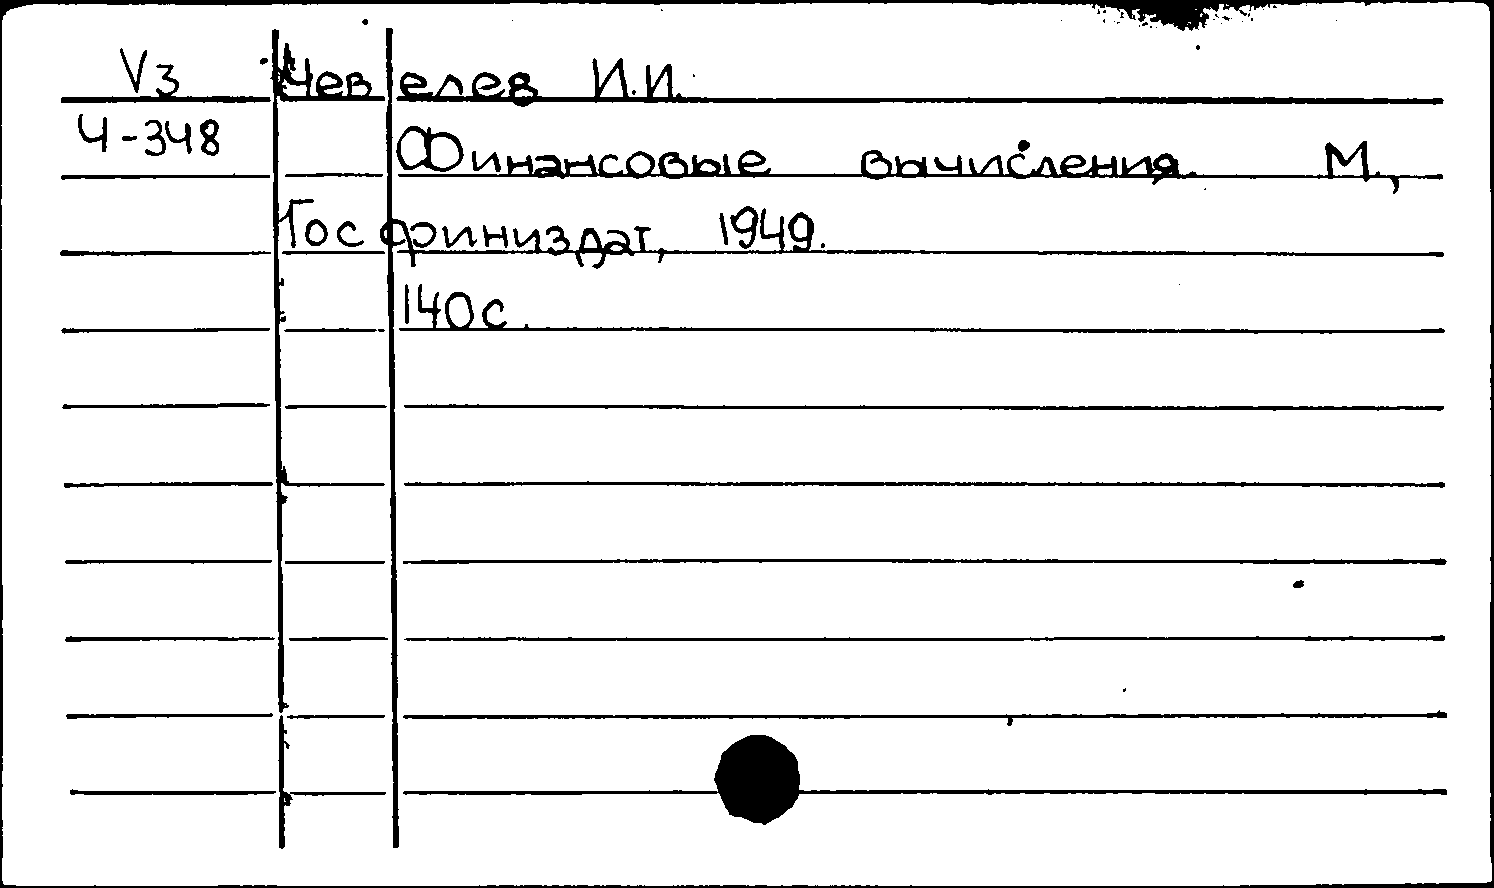 V3 Чевелев И.И.
Ч-348 Финансовые вычисления. М.,
Госфиниздат, 1949.
140с.